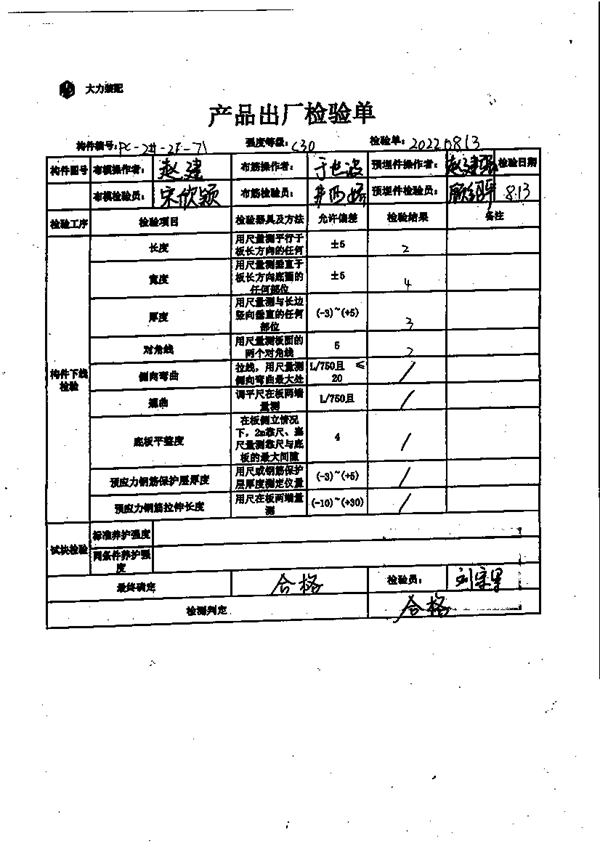 大力装配
产品出厂检验单
构件编号: PC-2#-2F-71 强度等级: C30 检验单: 20220813
构件图号 布模操作者: 赵建 布筋操作者: 预埋件操作者: 赵建强 检验日期
布模检验员: 宋欣颖 布筋检验员: 预埋件检验员: 8.13
检验工序 检验项目 检验器具及方法 允许偏差 检验结果 备注
构件下线检验
长度 用尺量测平行于板长方向的任何 ±5 2
宽度 用尺量测垂直于板长方向底面的任何部位 ±5 4
厚度 用尺量测与长边竖向垂直的任何部位 (-3)~(+5) 3
对角线 用尺量测板面的两个对角线 5 2
侧向弯曲 拉线，用尺量测侧向弯曲最大处 L/750且 ≤20 /
翘曲 调平尺在板两端量测 L/750且 /
底板平整度 在板侧立情况下，2m靠尺、塞尺量测靠尺与底板的最大间隙 4 /
预应力钢筋保护层厚度 用尺或钢筋保护层厚度测定仪量 (-3)~(+5) /
预应力钢筋拉伸长度 用尺在板两端量测 (-10)~(+30) /
试块检验 标准养护强度
同条件养护强度
最终确定 合格 检验员:
检测判定 合格